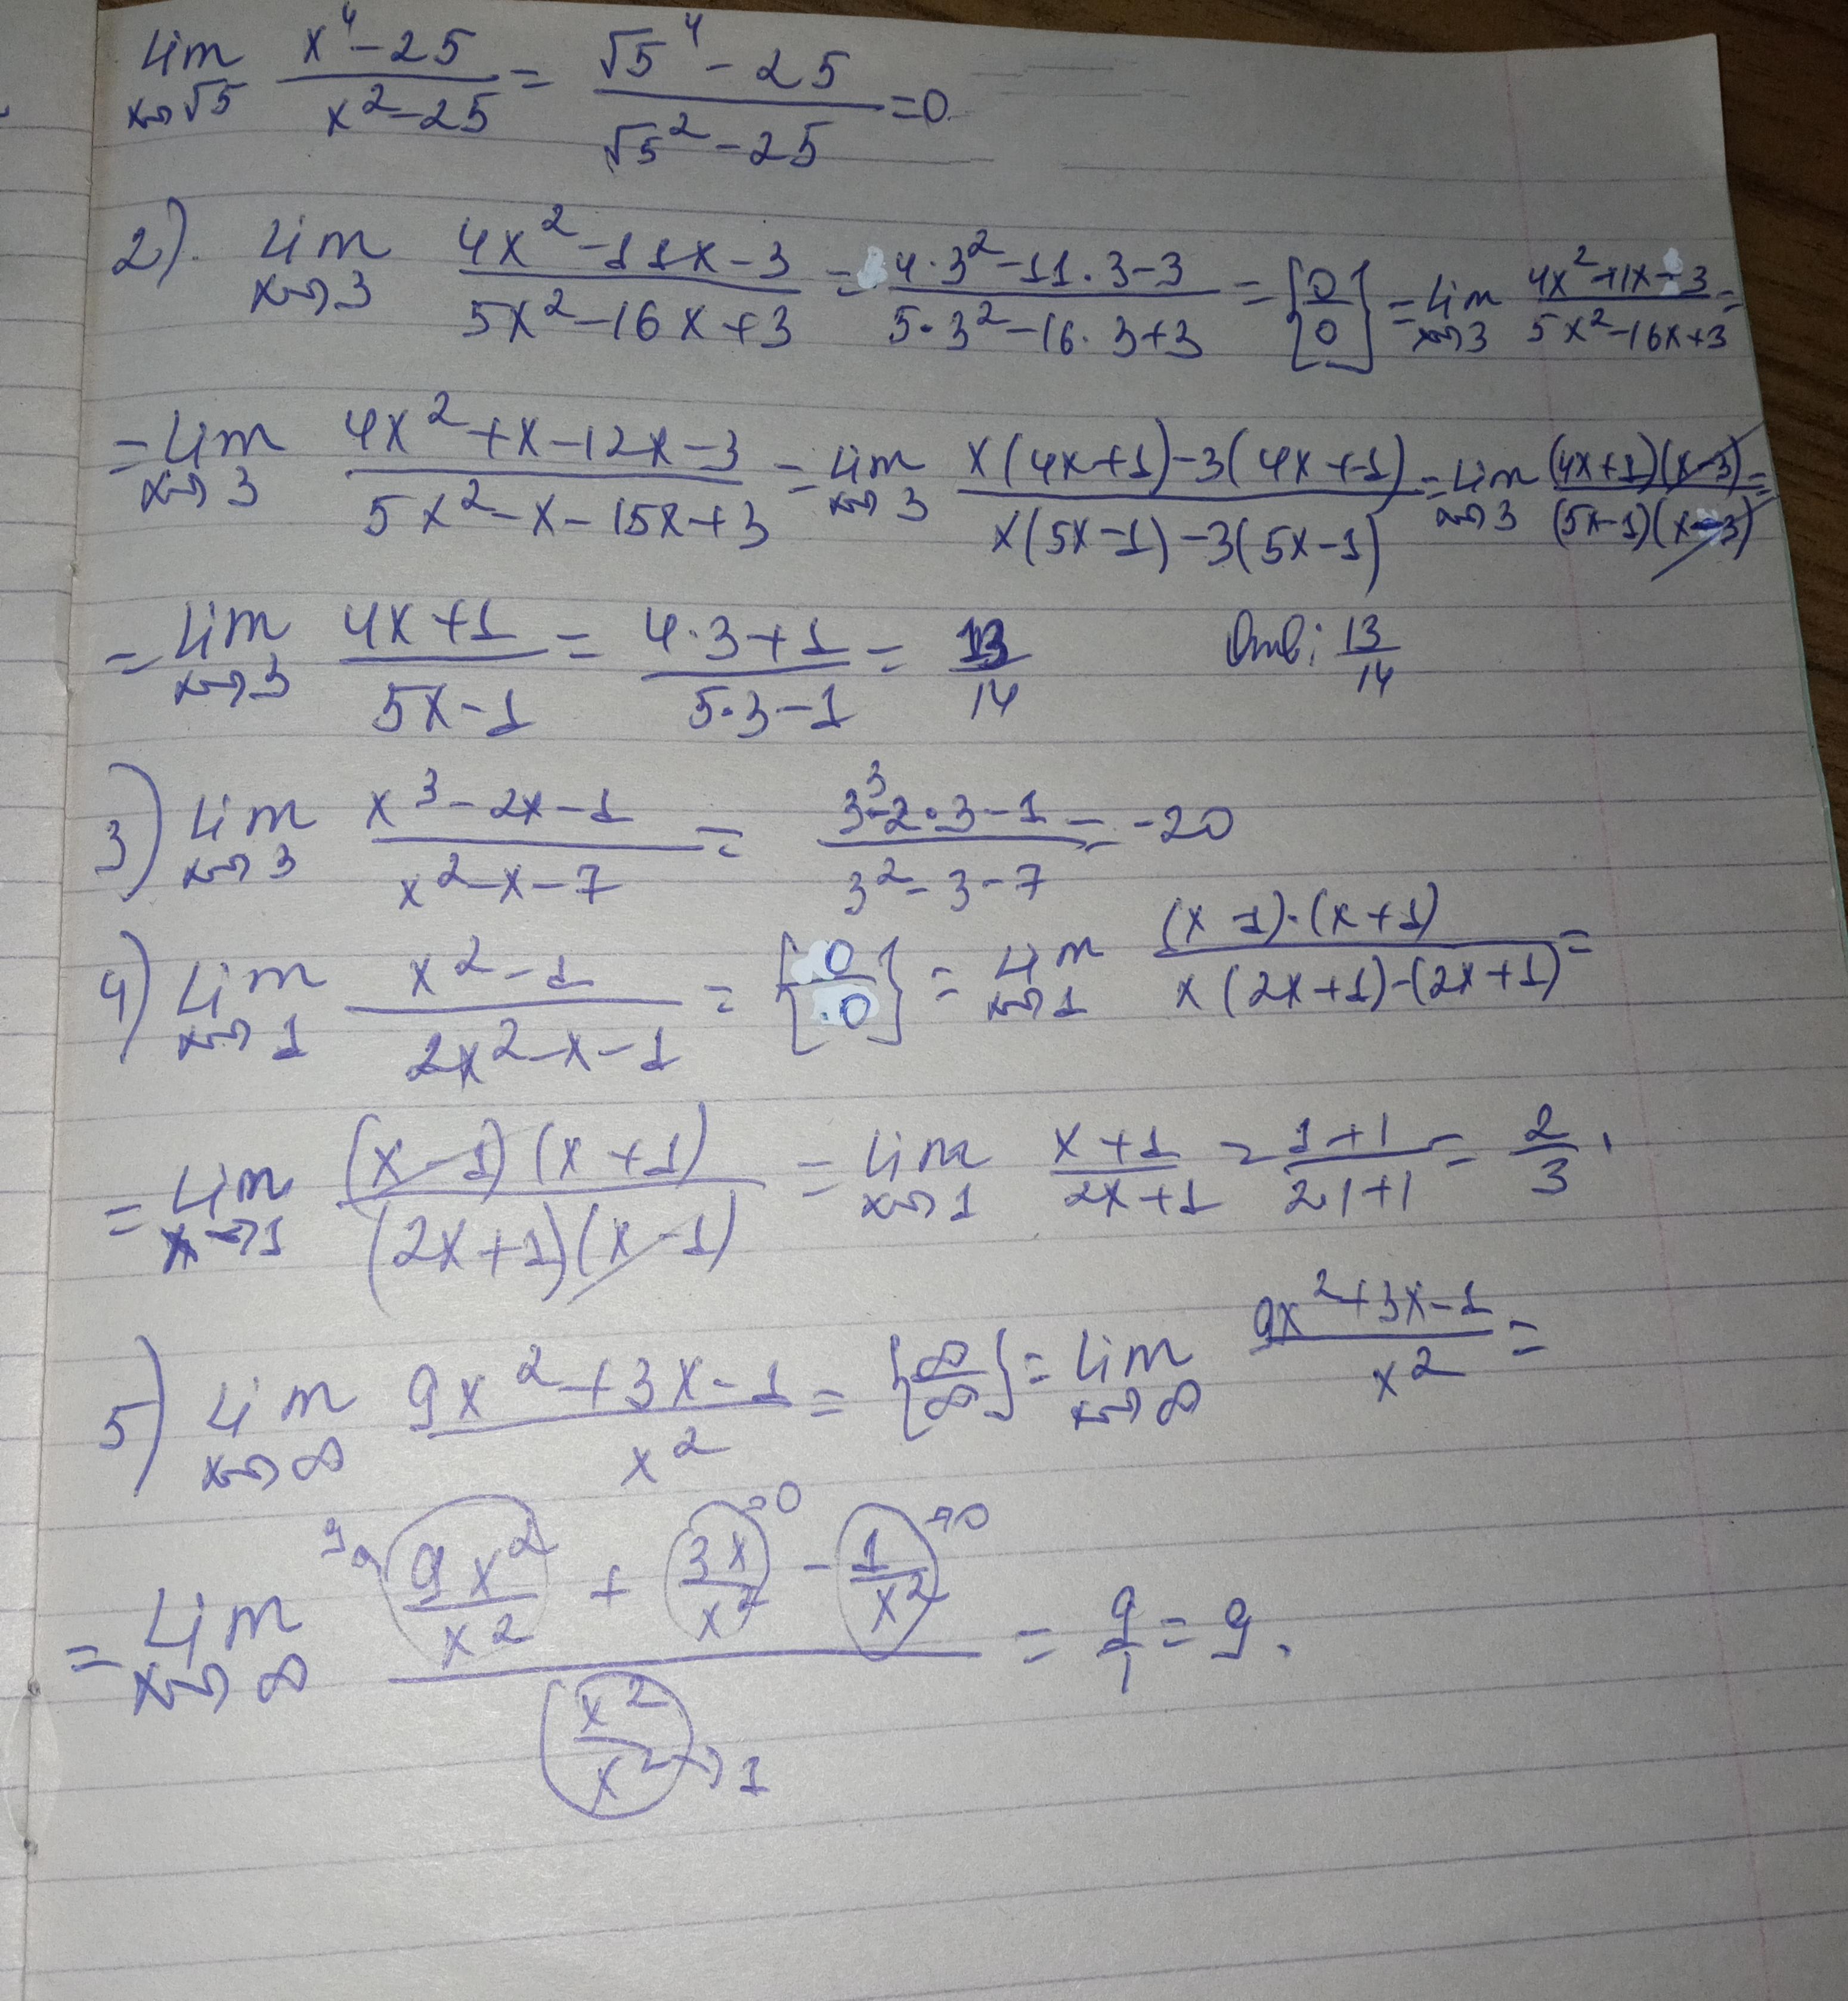 lim x→√5 (x⁴-25)/(x²-25) = (√5⁴-25)/(√5²-25) = 0
2). lim x→3 (4x²-11x-3)/(5x²-16x+3) = (4·3²-11·3-3)/(5·3²-16·3+3) = [0/0] = lim x→3 (4x²-11x-3)/(5x²-16x+3) =
= lim x→3 (4x²+x-12x-3)/(5x²-x-15x+3) = lim x→3 (x(4x+1)-3(4x+1))/(x(5x-1)-3(5x-1)) = lim x→3 ((4x+1)(x-3))/((5x-1)(x-3)) =
= lim x→3 (4x+1)/(5x-1) = (4·3+1)/(5·3-1) = 13/14 Отв: 13/14
3) lim x→3 (x³-2x-1)/(x²-x-7) = (3³-2·3-1)/(3²-3-7) = -20
4) lim x→1 (x²-1)/(2x²-x-1) = [0/0] = lim x→1 ((x-1)·(x+1))/(x(2x+1)-(2x+1)) =
= lim x→1 ((x-1)(x+1))/((2x+1)(x-1)) = lim x→1 (x+1)/(2x+1) = (1+1)/(2·1+1) = 2/3.
5) lim x→∞ (9x²+3x-1)/x² = {∞/∞} = lim x→∞ (9x²+3x-1)/x² =
= lim x→∞ (9x²/x² →9 + 3x/x² →0 - 1/x² →0)/(x²/x² →1) = 9/1 = 9.